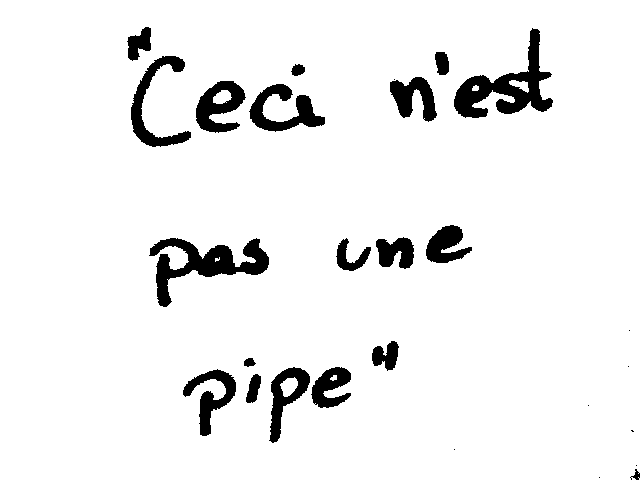 "Ceci n'est
pas une
pipe"